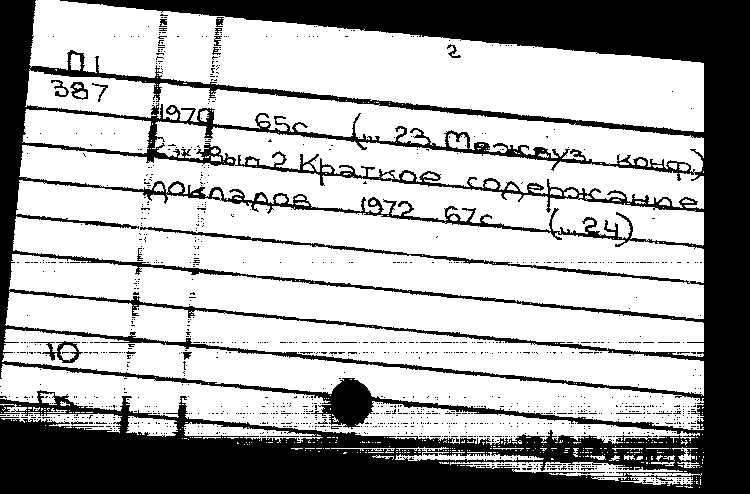 2
П1
387
1970 65с. (... 23 Межвуз. конф)
2экз Вып 2 Краткое содержание
докладов 1972 67с (... 24)
10
ГК